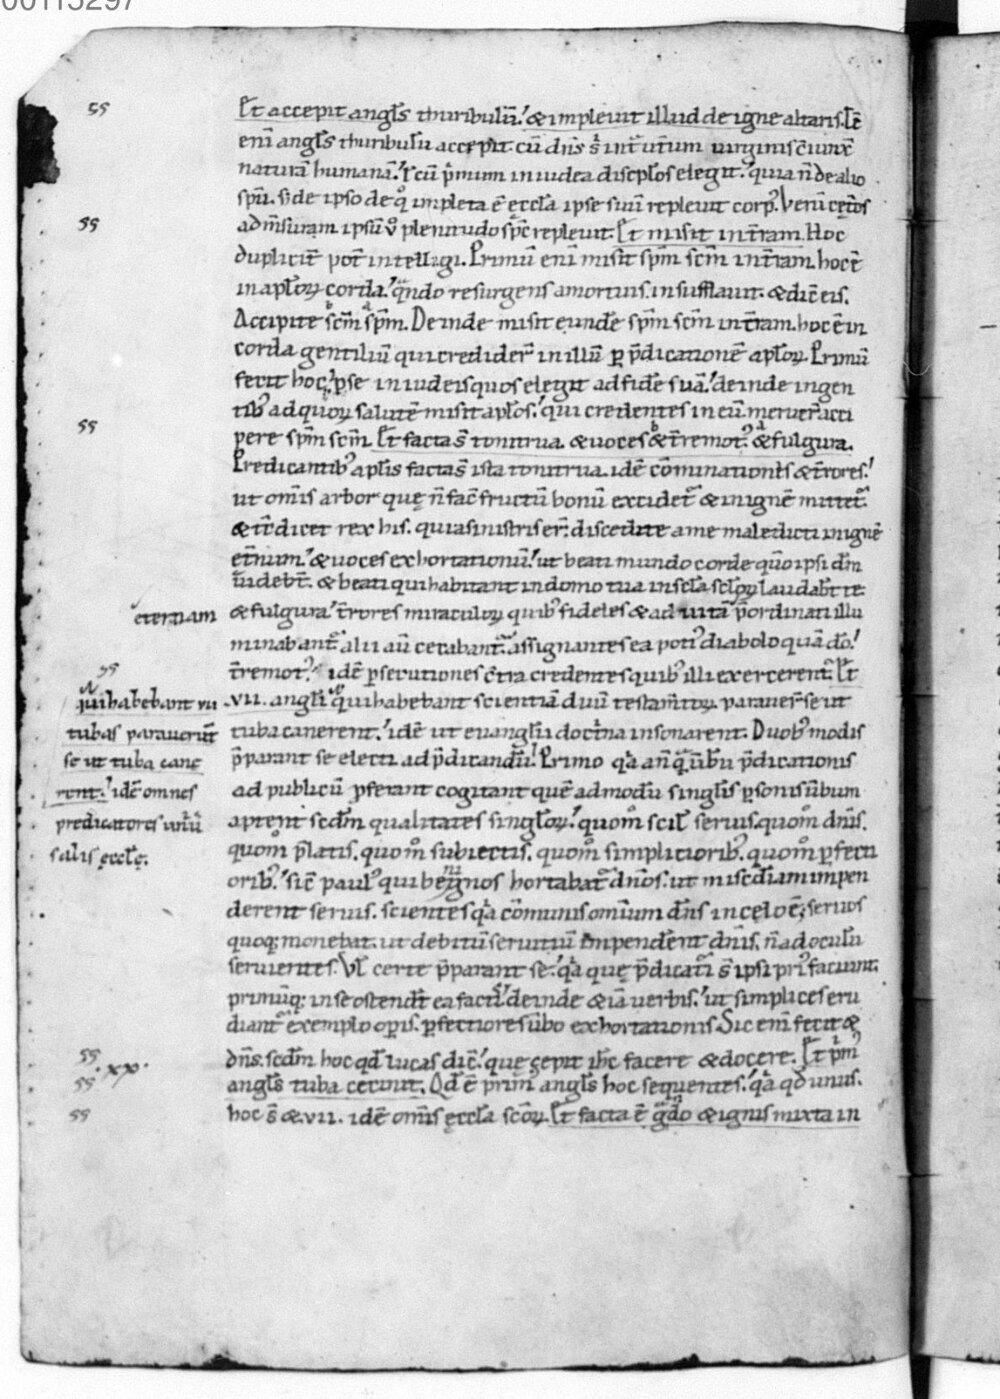 00115297
Et accepit angl̄s thuribulū. & impleuit illud de igne altaris. Id ē
enī angl̄s thuribulū accepit. cū dn̄s s̄ in uterum uirginis ē iunx̄
naturā humanā. ł cū p̄mum in iudea discipl̄os elegit. quia n̄ de alio
spū. s; de ipso de qͦ impleta ē ęccl̄a ipse suū repleuit corpꝰ. Verū cęt̄os
ad m̄suram ipsū uͦ plenitudo sp̄c repleuit. Et misit in t̄ram. Hoc
duplicit̄ pot̄ intelligi. Primū enī misit sp̄m sc̄m in t̄ram. hoc ē
in apl̄oꝝ corda. qn̄do resurgens a mortuis. insufflauit. & dic̄ eis.
Accipite sc̄m sp̄m. Deinde misit eunde sp̄m sc̄m in t̄ram. hoc ē in
corda gentiliū qui credider̄ in illū ꝑ p̄dicationē apl̄oꝝ. Primū
fecit hoc ipse in iudeis quos elegit ad fidē suā. deinde in gen
tibꝰ ad quoꝝ salutē misit apl̄os. qui credentes in eū meruer̄ acci
pere sp̄m sc̄m. Et facta s̄ tonitrua. & uoces & t̄remotꝰ. & fulgura.
Predicantibꝰ apl̄is facta s̄ ista tonitrua. idē cōminationes & t̄rores.
ut omīs arbor quę n̄ fac̄ fructū bonū excidet̄ & in ignē mittet̄.
& it̄ dicet rex his. qui a sinistris er̄. discedite a me maledicti in ignē
et̄num. & uoces exhortationū. ut beati mundo corde qūo ipsi dm̄
uidebt̄. & beati qui habitant in domo tua in scl̄a scl̄oꝝ laudabt̄ te.
& fulgura. t̄rores miraculoꝝ quibꝰ fideles & ad uitā p̄ordinati illu
minabant̄ alii au̅ cecabant̄. assignantes ea potiꝰ diabolo quā dō.
t̄remotꝰ. idē ꝑsecutiones c̄tra credentes quibꝰ illi exercerent̄. Et
.vii. angl̄i qui habebant scientiā duū testam̄toꝝ. parauer̄ se ut
tuba canerent. idē ut euangl̄ii doct̄na insonarent. Duobꝰ modis
p̄parant se electi ad p̄dicandū. Primo qa an̄ qͣ ūbū p̄dicationis
ad publicū ꝓferant cogitant quē admodū singl̄is ꝑsonis ūbum
aptent sc̄dm qualitates singl̄oꝝ. quom̊ scil̄ seruis. quom̊ dn̄is.
quom̊ p̄latis. quom̊ subiectis. quom̊ simplicioribꝰ. quom̊ ꝑfecti
oribꝰ. sic̄ paulꝰ qui benignos hortabat̄ dn̄os. ut misc̄diam impen
derent seruis. scientes qa cōmunis omīum dn̄s in cęlo ē. seruos
quoq; monebat. ut debitū seruitiū impendent dn̄is. n̄ ad oculū
seruientes. Vl̄ certe p̄parant se. qa quę p̄dicat̄i s̄ ipsi priꝰ faciunt.
primūq; in se ostendt̄ ea facti. deinde & iā uerbis. ut simplices eru
diant̄ exemplo oꝑis. ꝑfectiores ūbo exhortationis. Sic enī fecit &
dn̄s. sc̄dm hoc qd̄ lucas dic̄. quę cępit ihc̄ facere & docere. Et p̄mꝰ
angl̄s tuba cecinit. Qd̄ ē primꝰ angl̄s hoc sequentes. qa qd̄ unus.
hoc s̄ & .vii. idē omīs ęccl̄a sc̄oꝝ. Et facta ē g̊̄do & ignis mixta in
eternam
qui habebant vii
tubas parauerūt
se ut tuba cane
rent. idē omnes
predicatores uniū
salis ęccl̄ę.
.xx.